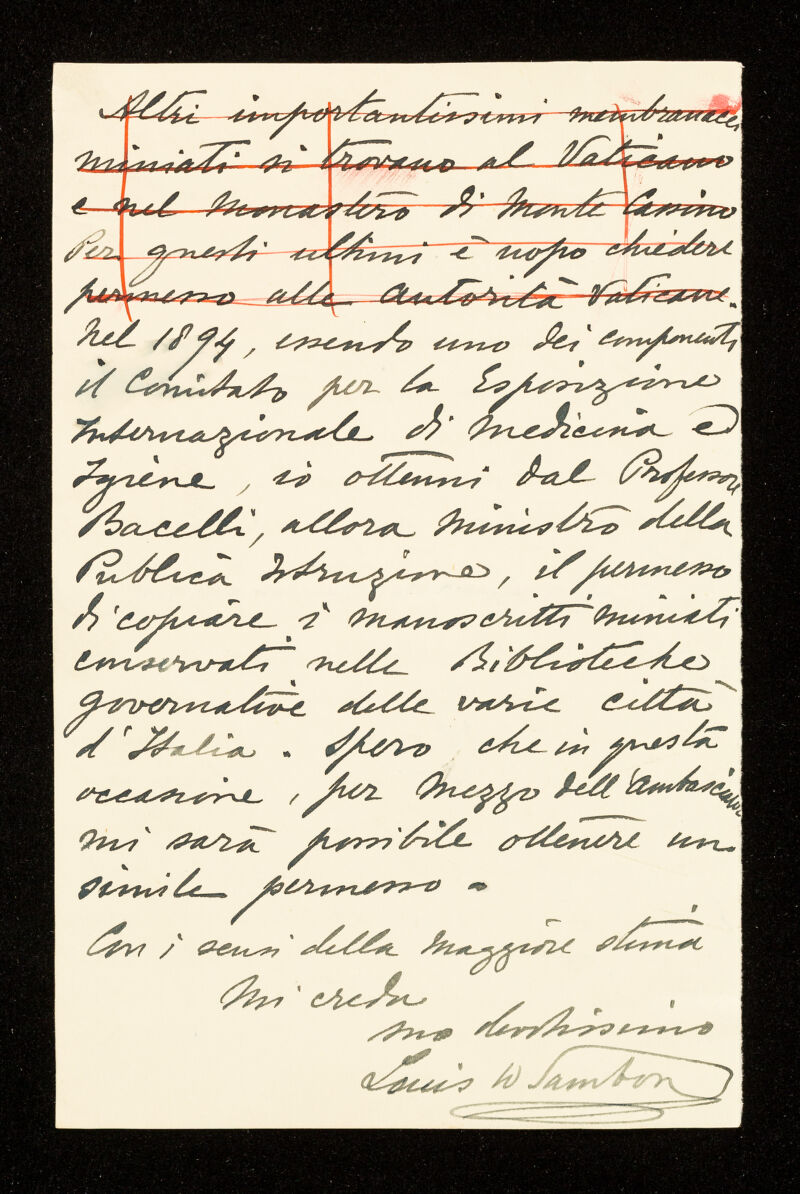 Altri importantissimi membranacei
miniati si trovano al Vaticano
e nel Monastero di Monte Cassino
Per questi ultimi è uopo chiedere
permesso alle autorità Vaticane.
Nel 1894, essendo uno dei componenti
il Comitato per la Esposizione
Internazionale di Medicina ed
Igiene, io ottenni dal Professore
Bacelli, allora Ministro della
Publica Istruzione, il permesso
di copiare i manoscritti miniati
conservati nelle Biblioteche
governative delle varie città
d'Italia. Spero che in questa
occasione, per mezzo dell'
mi sarà possibile ottenere un
simile permesso.
Con i sensi della maggiore stima
Mi creda
suo devotissimo
Louis W Sambon